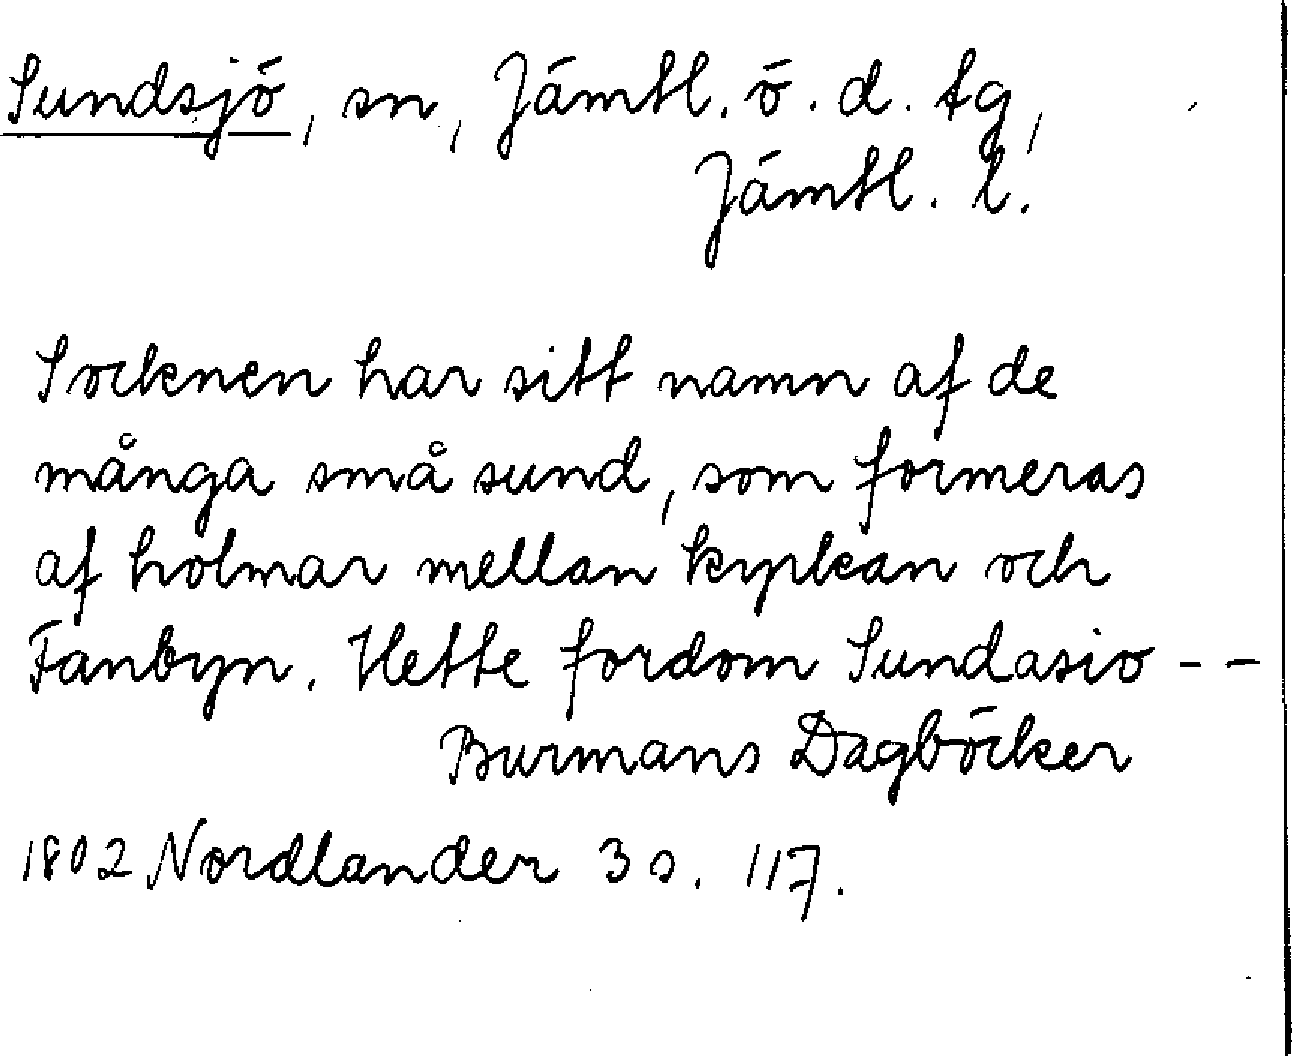 Sundsjö, sn, Jämtl. ö. d. tg,
Jämtl. l.
Socknen har sitt namn af de
många små sund, som formeras
af holmar mellan kyrkan och
Fanbyn. Hette fordom Sundasio - -
Burmans Dagböcker
1802 Nordlander 3 s. 117.